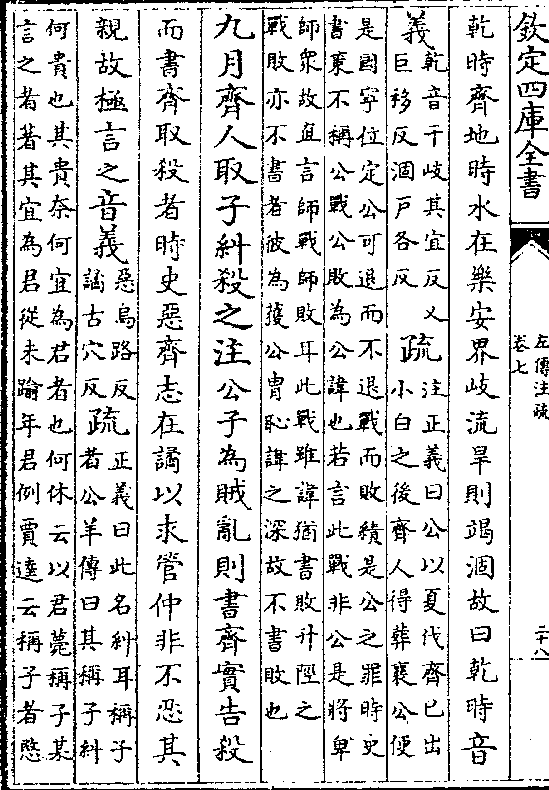 欽定四庫全書
左傳注疏
卷七
二十八
乾時齊地時水在樂安界歧流旱則竭涸故曰乾時音
義乾音干岐其宜反又
巨移反涸戸各反
疏注正義曰公以夏伐齊已出
小白之後齊人得葬襄公便
是國寧位定公可退而不退戰而敗績是公之罪時史
書棄不稱公戰公敗為公諱也若言此戰非公是將卑
師衆故直言師戰師敗耳此戰雖諱猶書敗升陘之
戰敗亦不書者彼為獲公胄恥諱之深故不書敗也
九月齊人取子糾殺之注公子為賊亂則書齊實告殺
而書齊取殺者時史惡齊志在譎以求管仲非不忍其
親故極言之音義惡烏路反
譎古穴反
疏正義曰此名糾耳稱子
者公羊傳曰其稱子糾
何貴也其貴奈何宜為君者也何休云以君薨稱子某
言之者著其宜為君從未踰年君例賈逵云稱子者愍